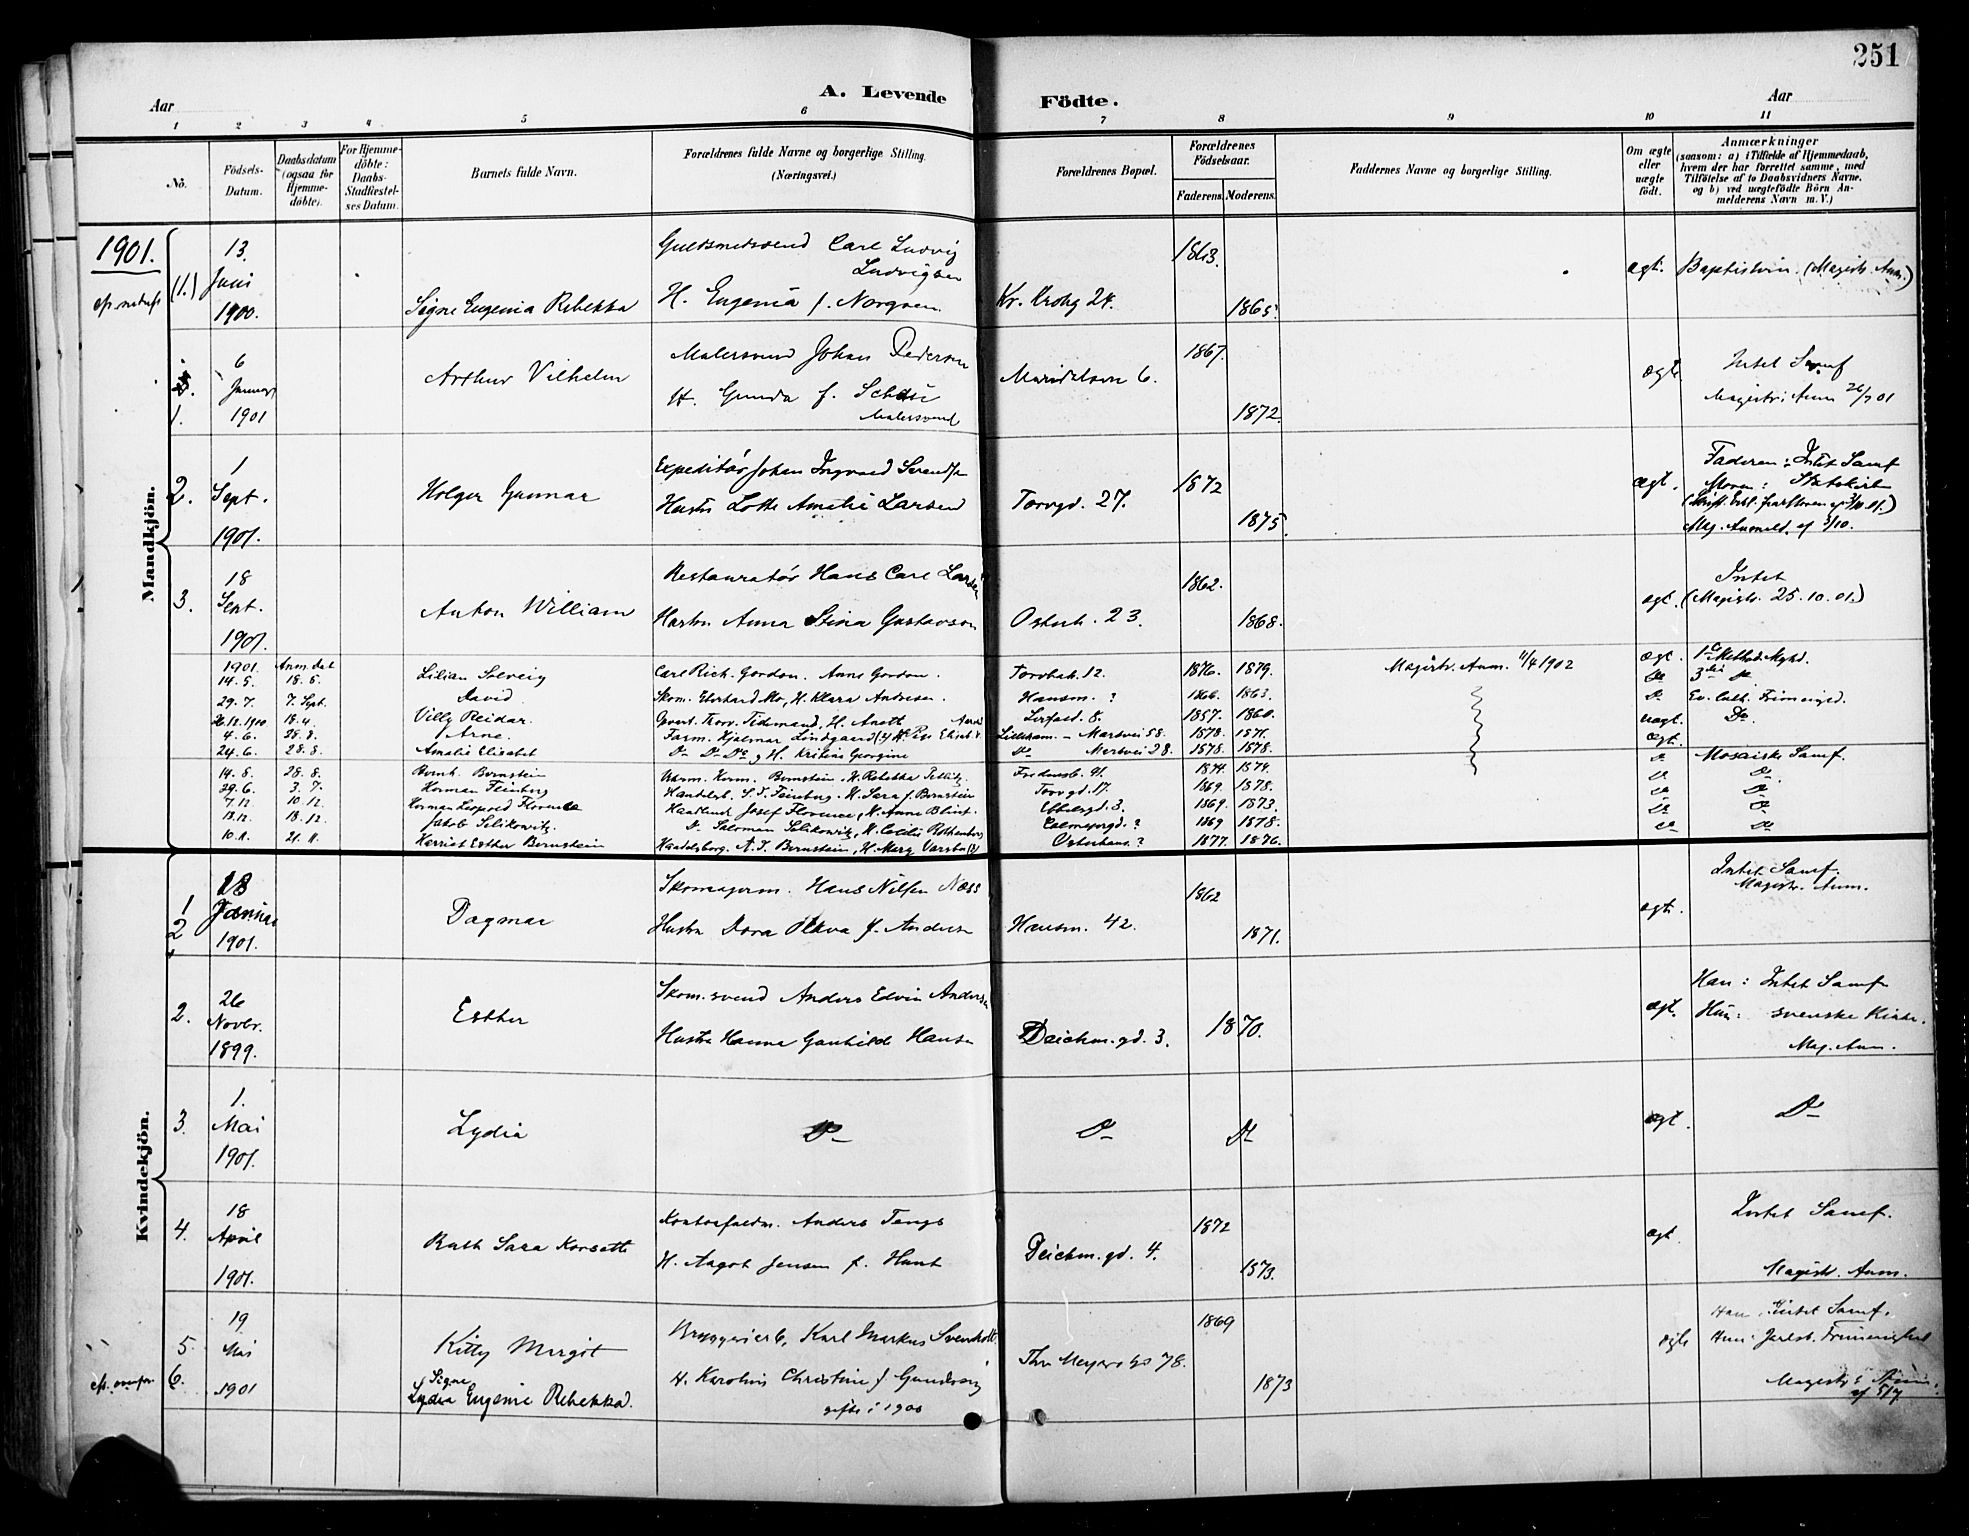 251
Aar
A. Levende
Födte.
Aar
1 2 3 4 5 6 7 8 9 10 11
No.
Födsels-Datum.
Daabsdatum (ogsaa for Hjemme-döbte).
For Hjemme-döbte: Daabs-Stadfæstel-ses Datum.
Barnets fulde Navn.
Forældrenes fulde Navne og borgerlige Stilling.
(Næringsvei.)
Forældrenes Bopæl.
Forældrenes Födselsaar.
Faderens. Moderens.
Faddernes Navne og borgerlige Stilling.
Om ægte eller uægte födt.
Anmærkninger
(saasom: a) i Tilfælde af Hjemmedaab,
hvem der har forrettet samme, med
Tilföielse af to Daabsvidners Navne.
og b) ved uægtefödte Börn An-
melderens Navn m. V.)
Mandkjön.
1901.
(1.) 13. Juni 1900. Signe Eugenia Rebekka
Guldsmedsvend Carl Ludvig Ludvigsen
H. Eugenia f. Norgren
Kr. Krohg 24. 1863. 1865. ægt. Baptistin. (Magistr. Anm.)
1. 6 Januar 1901 Arthur Vilhelm
Malersvend Johan Pedersen
H. Gunda f.
Malersvend
Maridalsvn 6. 1867. 1872. ægte. Intet Samf
Magistr. Anm 26/7 01
2. 1 Sept. 1901. Holger Gunnar
Expeditör Johan Ingvald
Hustru Lotte Amalie Larsen
Torvgd. 27. 1872 1875. ægt. Faderen: Intet Samf
Moren: Statskirk
Mag. Anmeld. af 3/10.
3. 18 Sept. 1901. Anton William
Restauratör Hans Carl
Hustru Anna Stina Gustavson
Osterh. 23. 1862. 1868. ægt. Intet
(Magistr. 25.10.01.)
1901. Anm. dat
14.5. 18.5. Lilian Solveig Carl Rich. Gordon. Anne Gordon. Torvbak. 12. 1876. 1879. Magistr. Anm. 11/4 1902 ægt. 1ste Method. Mghd.
29.7. 7. Sept. David Skom. Eberhard Mo, H. Klara Andresen. Hausm. ? 1866. 1863. Do 3die Do
26.12.1900 18.4. Villy Reidar. Thorv. Tidemand, H. Anett 8. 1857. 1860. Do Ev. Luth. Frimenighed.
4.6. 28.8. Arne. Fagm. Hjalmar Lindgaard Lilleham. - Marsvei 58. 1878. 1871. uægt. Do
24.6. 28.8. Amalie Elisabet Do Do Do, H. Kristine Georgine Do Marsvei 28. 1878. 1878. ægt.
14.8. 28.8. Bernh. Bernstein Bernstein, H. Rebekka Fredensb. 41. 1874. 1874. Do Mosaiske Samf.
29.6. 3.7. Herman Feinberg Handelsb. S. I. Feinberg. H. Sara f. Bernstein Torvgd. 17. 1869. 1878. Do Do
7.12. 10.12. Herman Leopold Florence Handlende Josef Florence, H. Anne Blint. 3. 1869. 1873. Do Do
13.12. 18.12. Jakob Selikowitz. Do Saloman Selikowitz, H. Cecilie Rothenberg Calmeyergd. ? 1869 1878. Do Do
10.11. 21.11. Harriet Esther Bernstein Handelsborg. N. I. Bernstein, H. Mary Osterhaus. ? 1877. 1876. Do Do
Kvindekjön.
1 Januar 1901. Dagmar
Skomagerm. Hans Nilsen Næss
Hustru Dora Olava f. Andersen
Hausm. 42. 1862 1871. ægt. Intet Samf.
Magistr. Anm.
2. 26 Novbr. 1899. Esther
Skom.svend Anders Edvin Andersen
Hustru Hanna Gunhilde Hansen
Deichm.gd. 3. 1870. ægt. Han: Intet Samf
Hun: svenske Kirke.
Mag. Anm.
3. 1. Mai 1901. Lydia Do Do Do ægt. Do
4. 18 April 1901. Ruth Sara
Anders Tengs
H. Aagot Jensen f. Hunt
Deichm.gd. 4. 1872 1873. ægt. Intet Samf.
Magistr. Anm.
5. 19 Mai 1901 Kitty Margit
Bryggeriarb. Karl Markus Svenholt.
H. Karoline Christine f. Gundersen
gifte i 1900
Thv Meyers gd 78. 1869 1873 ægte Han: Intet Samf.
Hun: Jarlsb. Frimenighed
Magistr. Anm. af 5/7
6. Signe
Lydia Eugenie Rebekka.